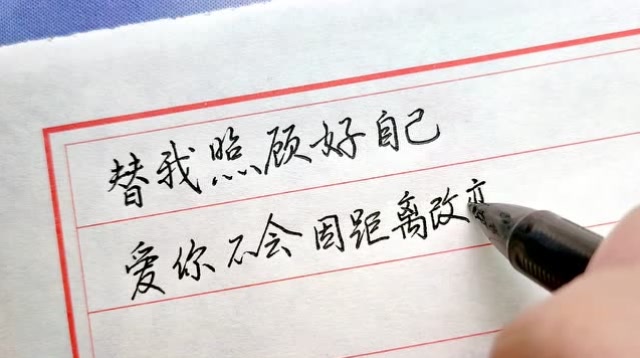 替我照顾好自己
爱你不会因距离改变